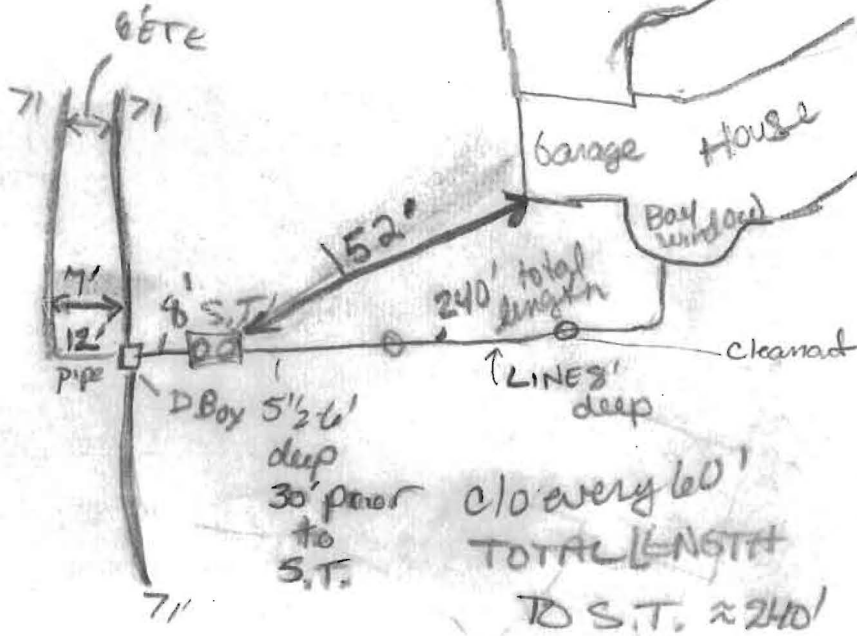 71
71
Garage
HOUSE
Bay
window
152'
240' total
length
7'
12'
pipe
8'
S.T.
D.Box
5 1/2-6'
deep
30' prior
to
S.T.
LINE 8'
deep
Cleanout
C/O every 60'
TOTAL LENGTH
TO S.T. ≈ 240'
71'